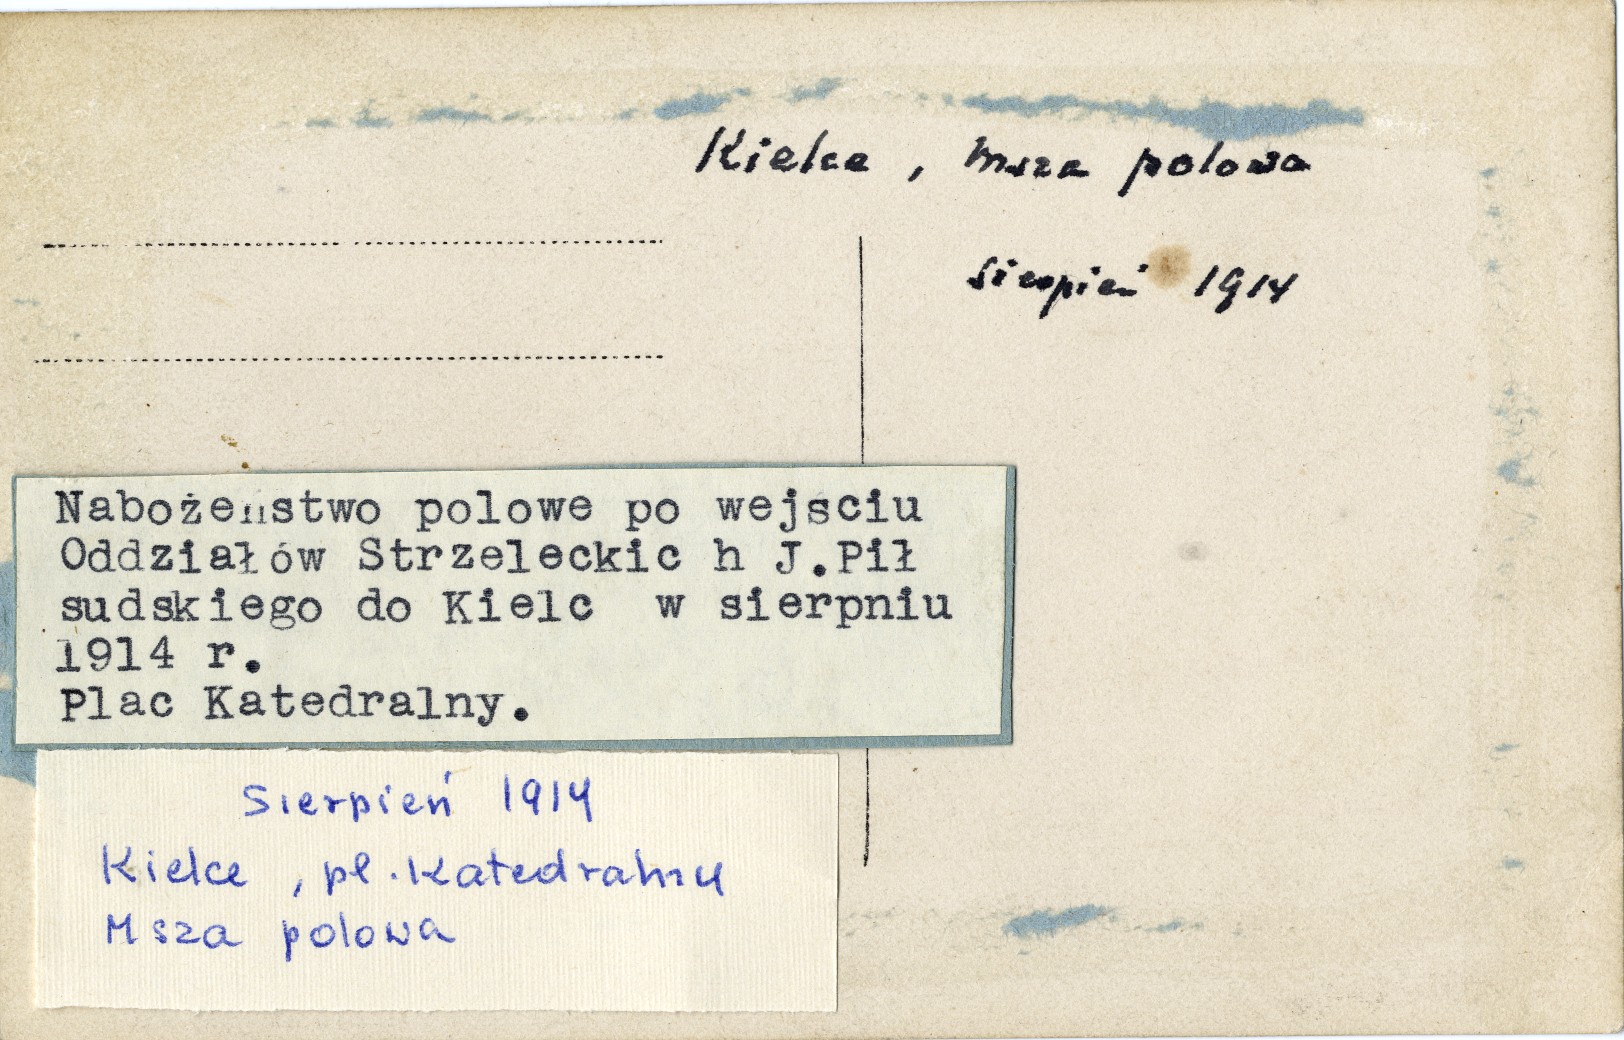 Kielce, Msza polowa
sierpień 1914
Nabożeństwo polowe po wejsciu
Oddziałów Strzeleckic h J.Pił
sudskiego do Kielc  w sierpniu
1914 r.
Plac Katedralny.
Sierpień 1914
Kielce, pl. Katedralny
Msza polowa